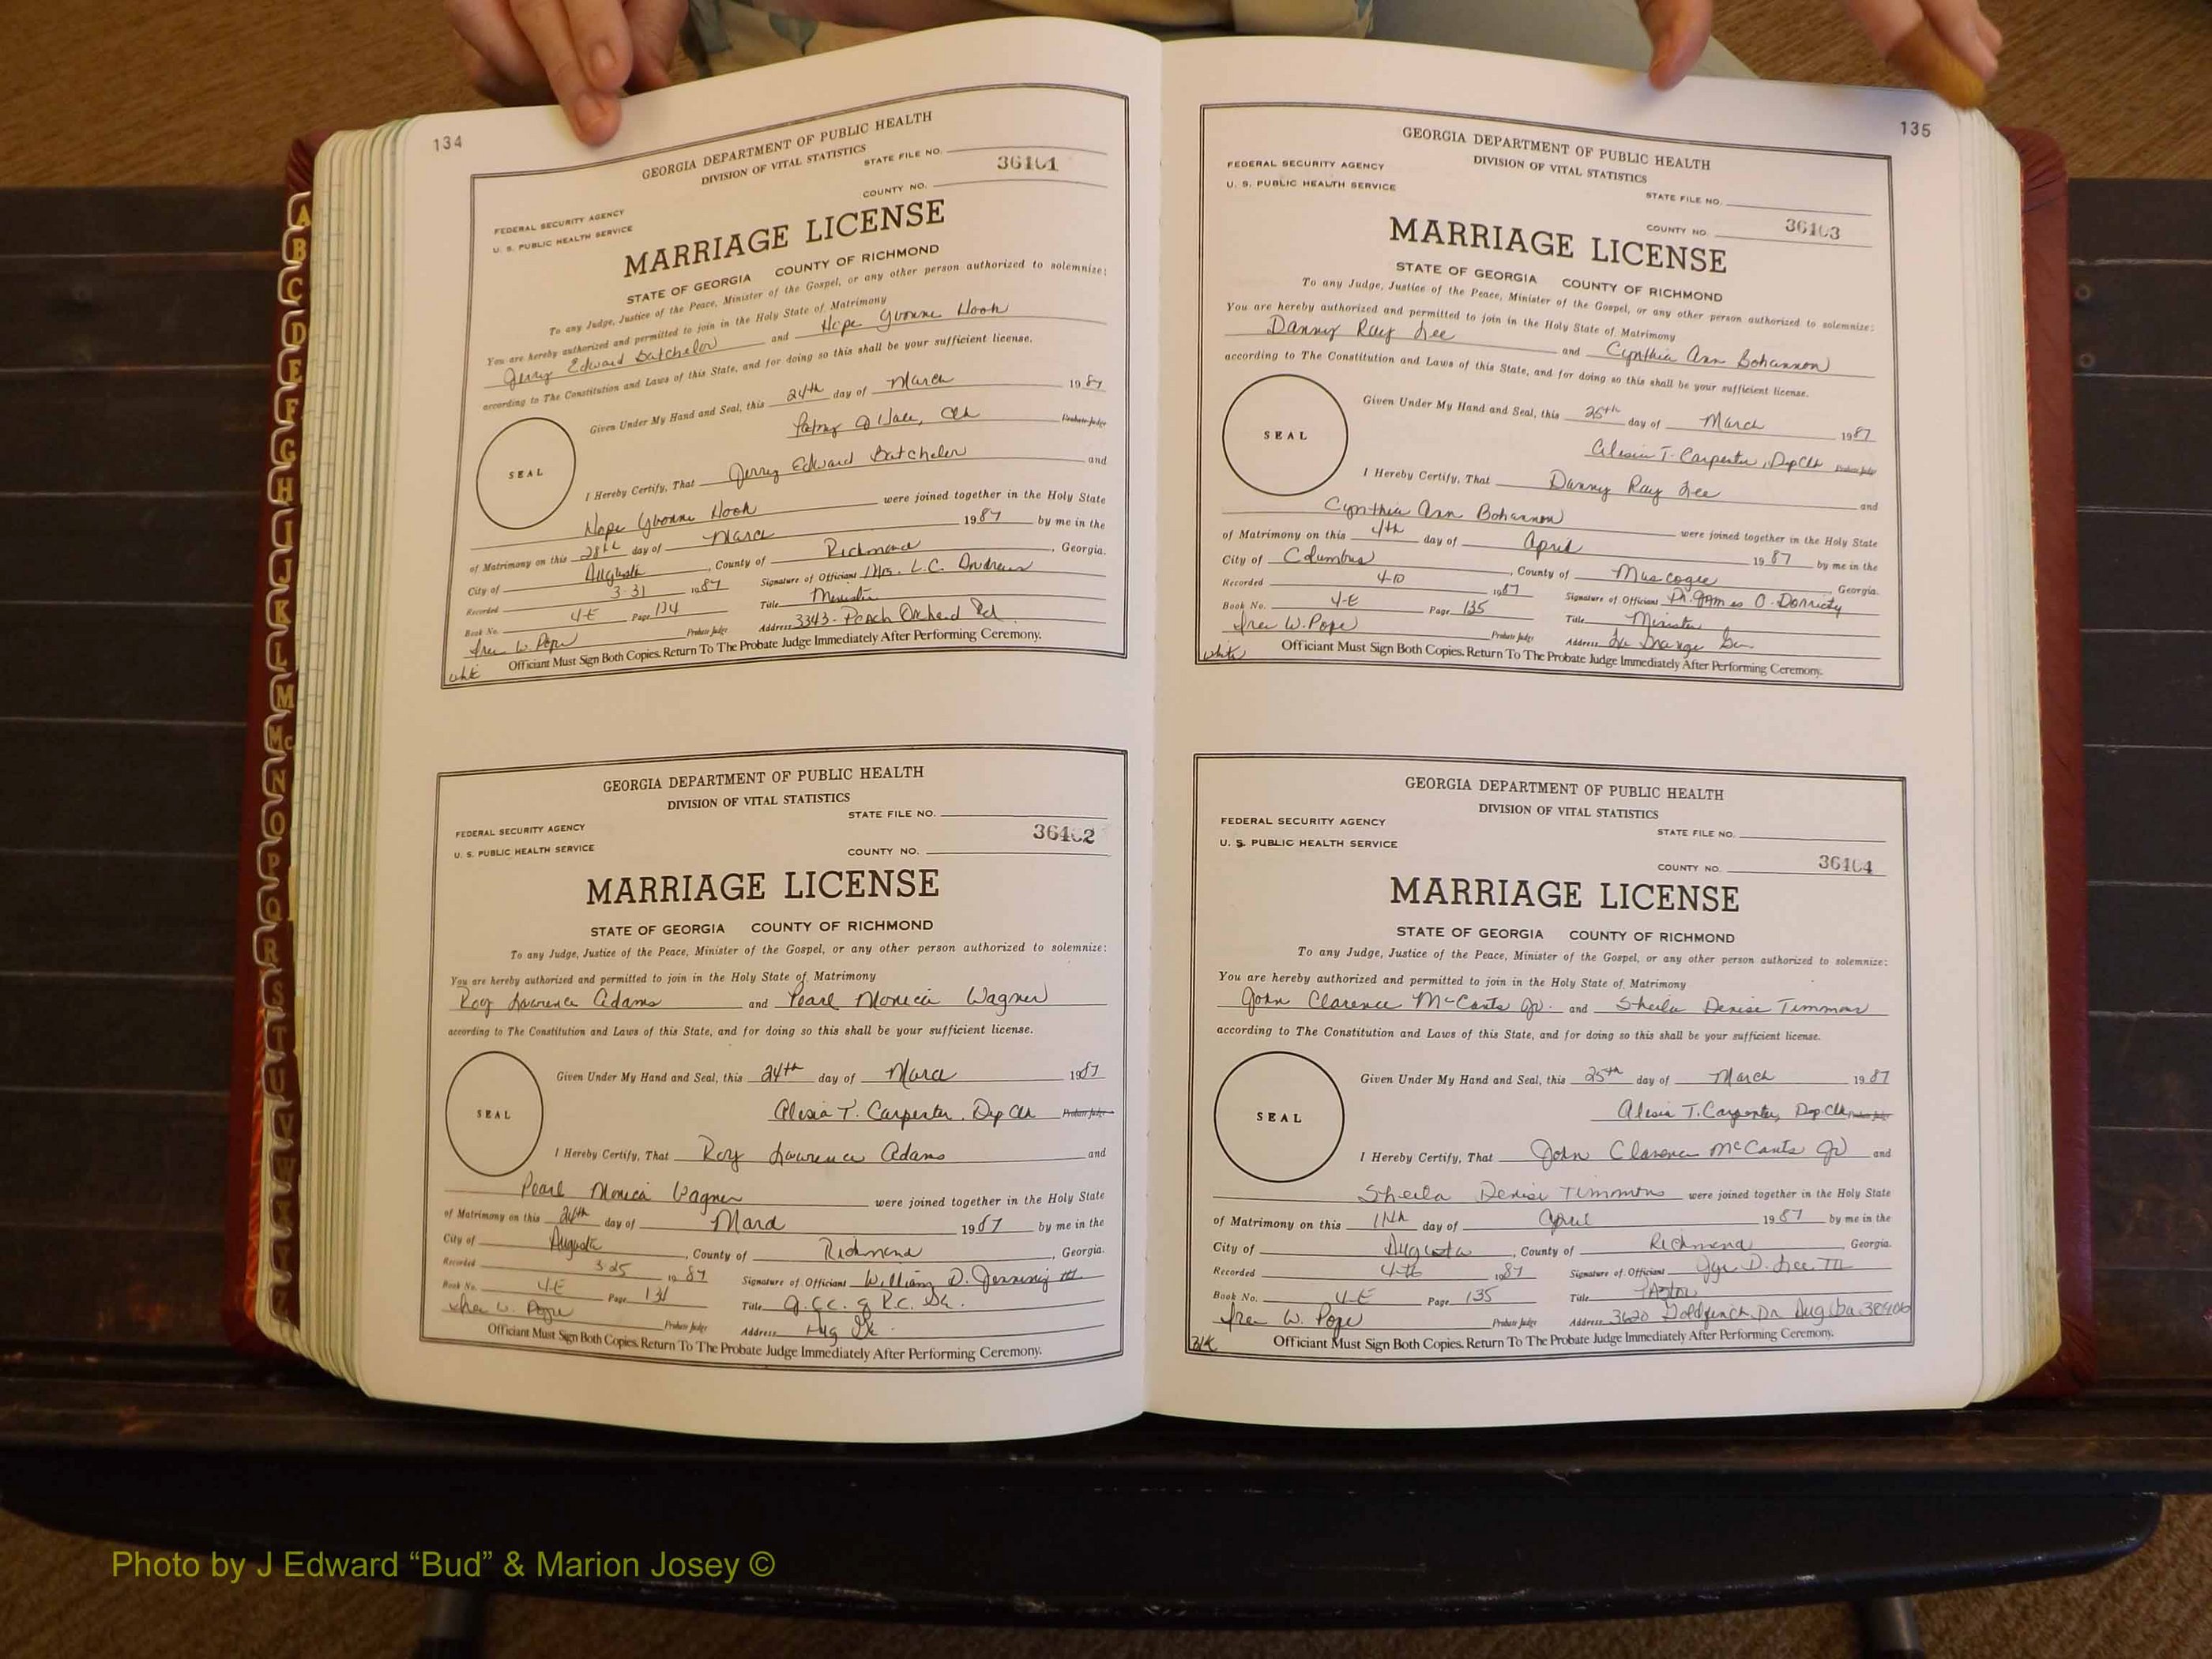 134
GEORGIA DEPARTMENT OF PUBLIC HEALTH
DIVISION OF VITAL STATISTICS
STATE FILE NO.
36101
COUNTY NO.
FEDERAL SECURITY AGENCY
U. S. PUBLIC HEALTH SERVICE
MARRIAGE LICENSE
STATE OF GEORGIA COUNTY OF RICHMOND
To any Judge, Justice of the Peace, Minister of the Gospel, or any other person authorized to solemnize:
You are hereby authorized and permitted to join in the Holy State of Matrimony
Jerry Edward Batchelor and Hope Yvonne Hook
according to The Constitution and Laws of this State, and for doing so this shall be your sufficient license.
Given Under My Hand and Seal, this 24th day of March 1987
Probate Judge
SEAL
I Hereby Certify, That Jerry Edward Batchelor and
Hope Yvonne Hook were joined together in the Holy State
of Matrimony on this 28th day of March 1987 by me in the
City of Augusta, County of Richmond, Georgia.
Recorded 3-31 1987 Signature of Officiant Mrs. L.C. Andrews
Book No. 4-E Page 134 Title Minister
W. Pope Probate Judge Address 3343 - Peach Orchard Rd
Officiant Must Sign Both Copies. Return To The Probate Judge Immediately After Performing Ceremony.
GEORGIA DEPARTMENT OF PUBLIC HEALTH
DIVISION OF VITAL STATISTICS
STATE FILE NO.
FEDERAL SECURITY AGENCY
36102
U. S. PUBLIC HEALTH SERVICE
COUNTY NO.
MARRIAGE LICENSE
STATE OF GEORGIA COUNTY OF RICHMOND
To any Judge, Justice of the Peace, Minister of the Gospel, or any other person authorized to solemnize:
You are hereby authorized and permitted to join in the Holy State of Matrimony
Roy Lawrence Adams and Pearl Monica Wagner
according to The Constitution and Laws of this State, and for doing so this shall be your sufficient license.
Given Under My Hand and Seal, this 24th day of March 1987
Alesia T. Carpenter, Dep Clk Probate Judge
SEAL
I Hereby Certify, That Roy Lawrence Adams and
Pearl Monica Wagner were joined together in the Holy State
of Matrimony on this 24th day of March 1987 by me in the
City of Augusta, County of Richmond, Georgia.
Recorded 3 25 1987 Signature of Officiant William D. Jennings III
Book No. 4-E Page Title
W. Pope Probate Judge Address Aug
Officiant Must Sign Both Copies. Return To The Probate Judge Immediately After Performing Ceremony.
135
GEORGIA DEPARTMENT OF PUBLIC HEALTH
DIVISION OF VITAL STATISTICS
FEDERAL SECURITY AGENCY
U. S. PUBLIC HEALTH SERVICE
STATE FILE NO.
36103
COUNTY NO.
MARRIAGE LICENSE
STATE OF GEORGIA COUNTY OF RICHMOND
To any Judge, Justice of the Peace, Minister of the Gospel, or any other person authorized to solemnize:
You are hereby authorized and permitted to join in the Holy State of Matrimony
Danny Ray Lee and Cynthia Ann Bohannon
according to The Constitution and Laws of this State, and for doing so this shall be your sufficient license.
Given Under My Hand and Seal, this 25th day of March 1987
Alesia T. Carpenter, Dep Clk Probate Judge
SEAL
I Hereby Certify, That Danny Ray Lee and
Cynthia Ann Bohannon were joined together in the Holy State
of Matrimony on this 4th day of April 1987 by me in the
City of Columbus, County of Muscogee Georgia.
Recorded 4-10 1987 Signature of Officiant O. Dorriety
Book No. 4-E Page 135 Title Minister
W. Pope Probate Judge Address La Grange Ga.
Officiant Must Sign Both Copies. Return To The Probate Judge Immediately After Performing Ceremony.
GEORGIA DEPARTMENT OF PUBLIC HEALTH
DIVISION OF VITAL STATISTICS
FEDERAL SECURITY AGENCY
STATE FILE NO.
U. S. PUBLIC HEALTH SERVICE
36104
COUNTY NO.
MARRIAGE LICENSE
STATE OF GEORGIA COUNTY OF RICHMOND
To any Judge, Justice of the Peace, Minister of the Gospel, or any other person authorized to solemnize:
You are hereby authorized and permitted to join in the Holy State of Matrimony
John Clarence McCants Jr. and Sheila Denise Timmons
according to The Constitution and Laws of this State, and for doing so this shall be your sufficient license.
Given Under My Hand and Seal, this 25th day of March 1987
Alesia T. Carpenter, Dep. Clk Probate Judge
SEAL
I Hereby Certify, That John Clarence McCants Jr and
Sheila Denise Timmons were joined together in the Holy State
of Matrimony on this 11th day of April 1987 by me in the
City of Augusta, County of Richmond Georgia.
Recorded 1987 Signature of Officiant D. Lee III
Book No. 4-E Page 135 Title Pastor
W. Pope Probate Judge Address 3620 Goldfinch Dr Aug Ga 30906
Blk Officiant Must Sign Both Copies. Return To The Probate Judge Immediately After Performing Ceremony.
A
B
C
D
E
F
G
H
I
J
K
L
M
Mc
N
O
P
Q
R
S
T
U
V
W
Photo by J Edward “Bud” & Marion Josey ©